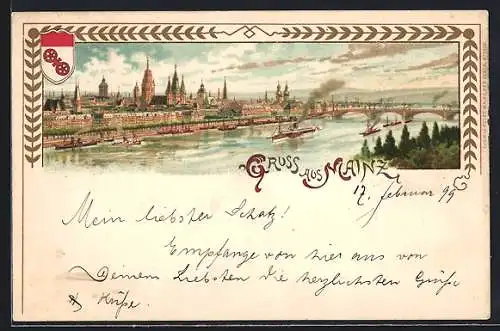 GRUSS AUS MAINZ
17. Februar 99
Mein liebster Schatz!
Empfange von hier aus von
Deinem Liebsten die herzlichsten Grüße
& Küße.